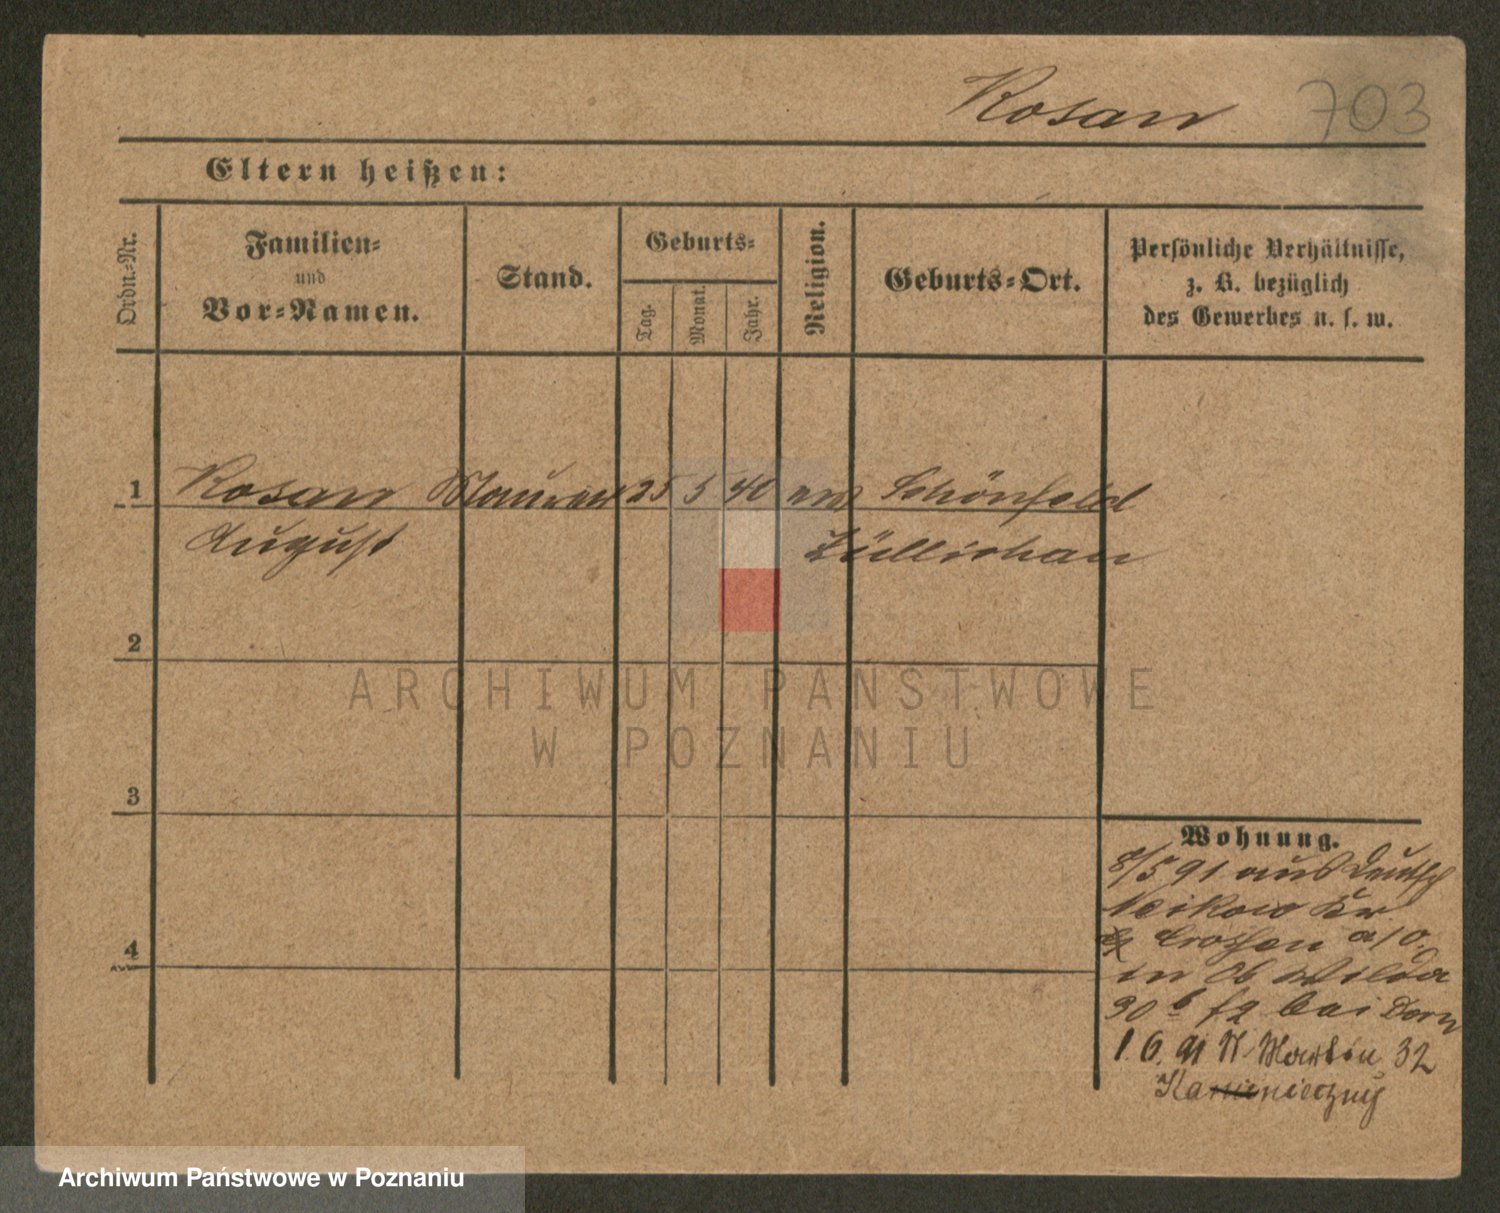 Rosan 703
Eltern heißen:
Ordn.-Nr.
Familien-
und
Vor-Namen.
Stand.
Geburts-
Tag.
Monat.
Jahr.
Religion.
Geburts-Ort.
Persönliche Verhältnisse,
z. B. bezüglich
des Gewerbes u. s. w.
1 Rosan Maurer 25 5 40 ev Schönfeld
August Züllichau
2
3
4
Wohnung.
8/5 91 aus Deutsch
Kr
Crossen a/O.
in Ob Wilda
30 b bei Dorn
1. 6. 91 St Martin 32
ARCHIWUM PAŃSTWOWE
W POZNANIU
Archiwum Państwowe w Poznaniu